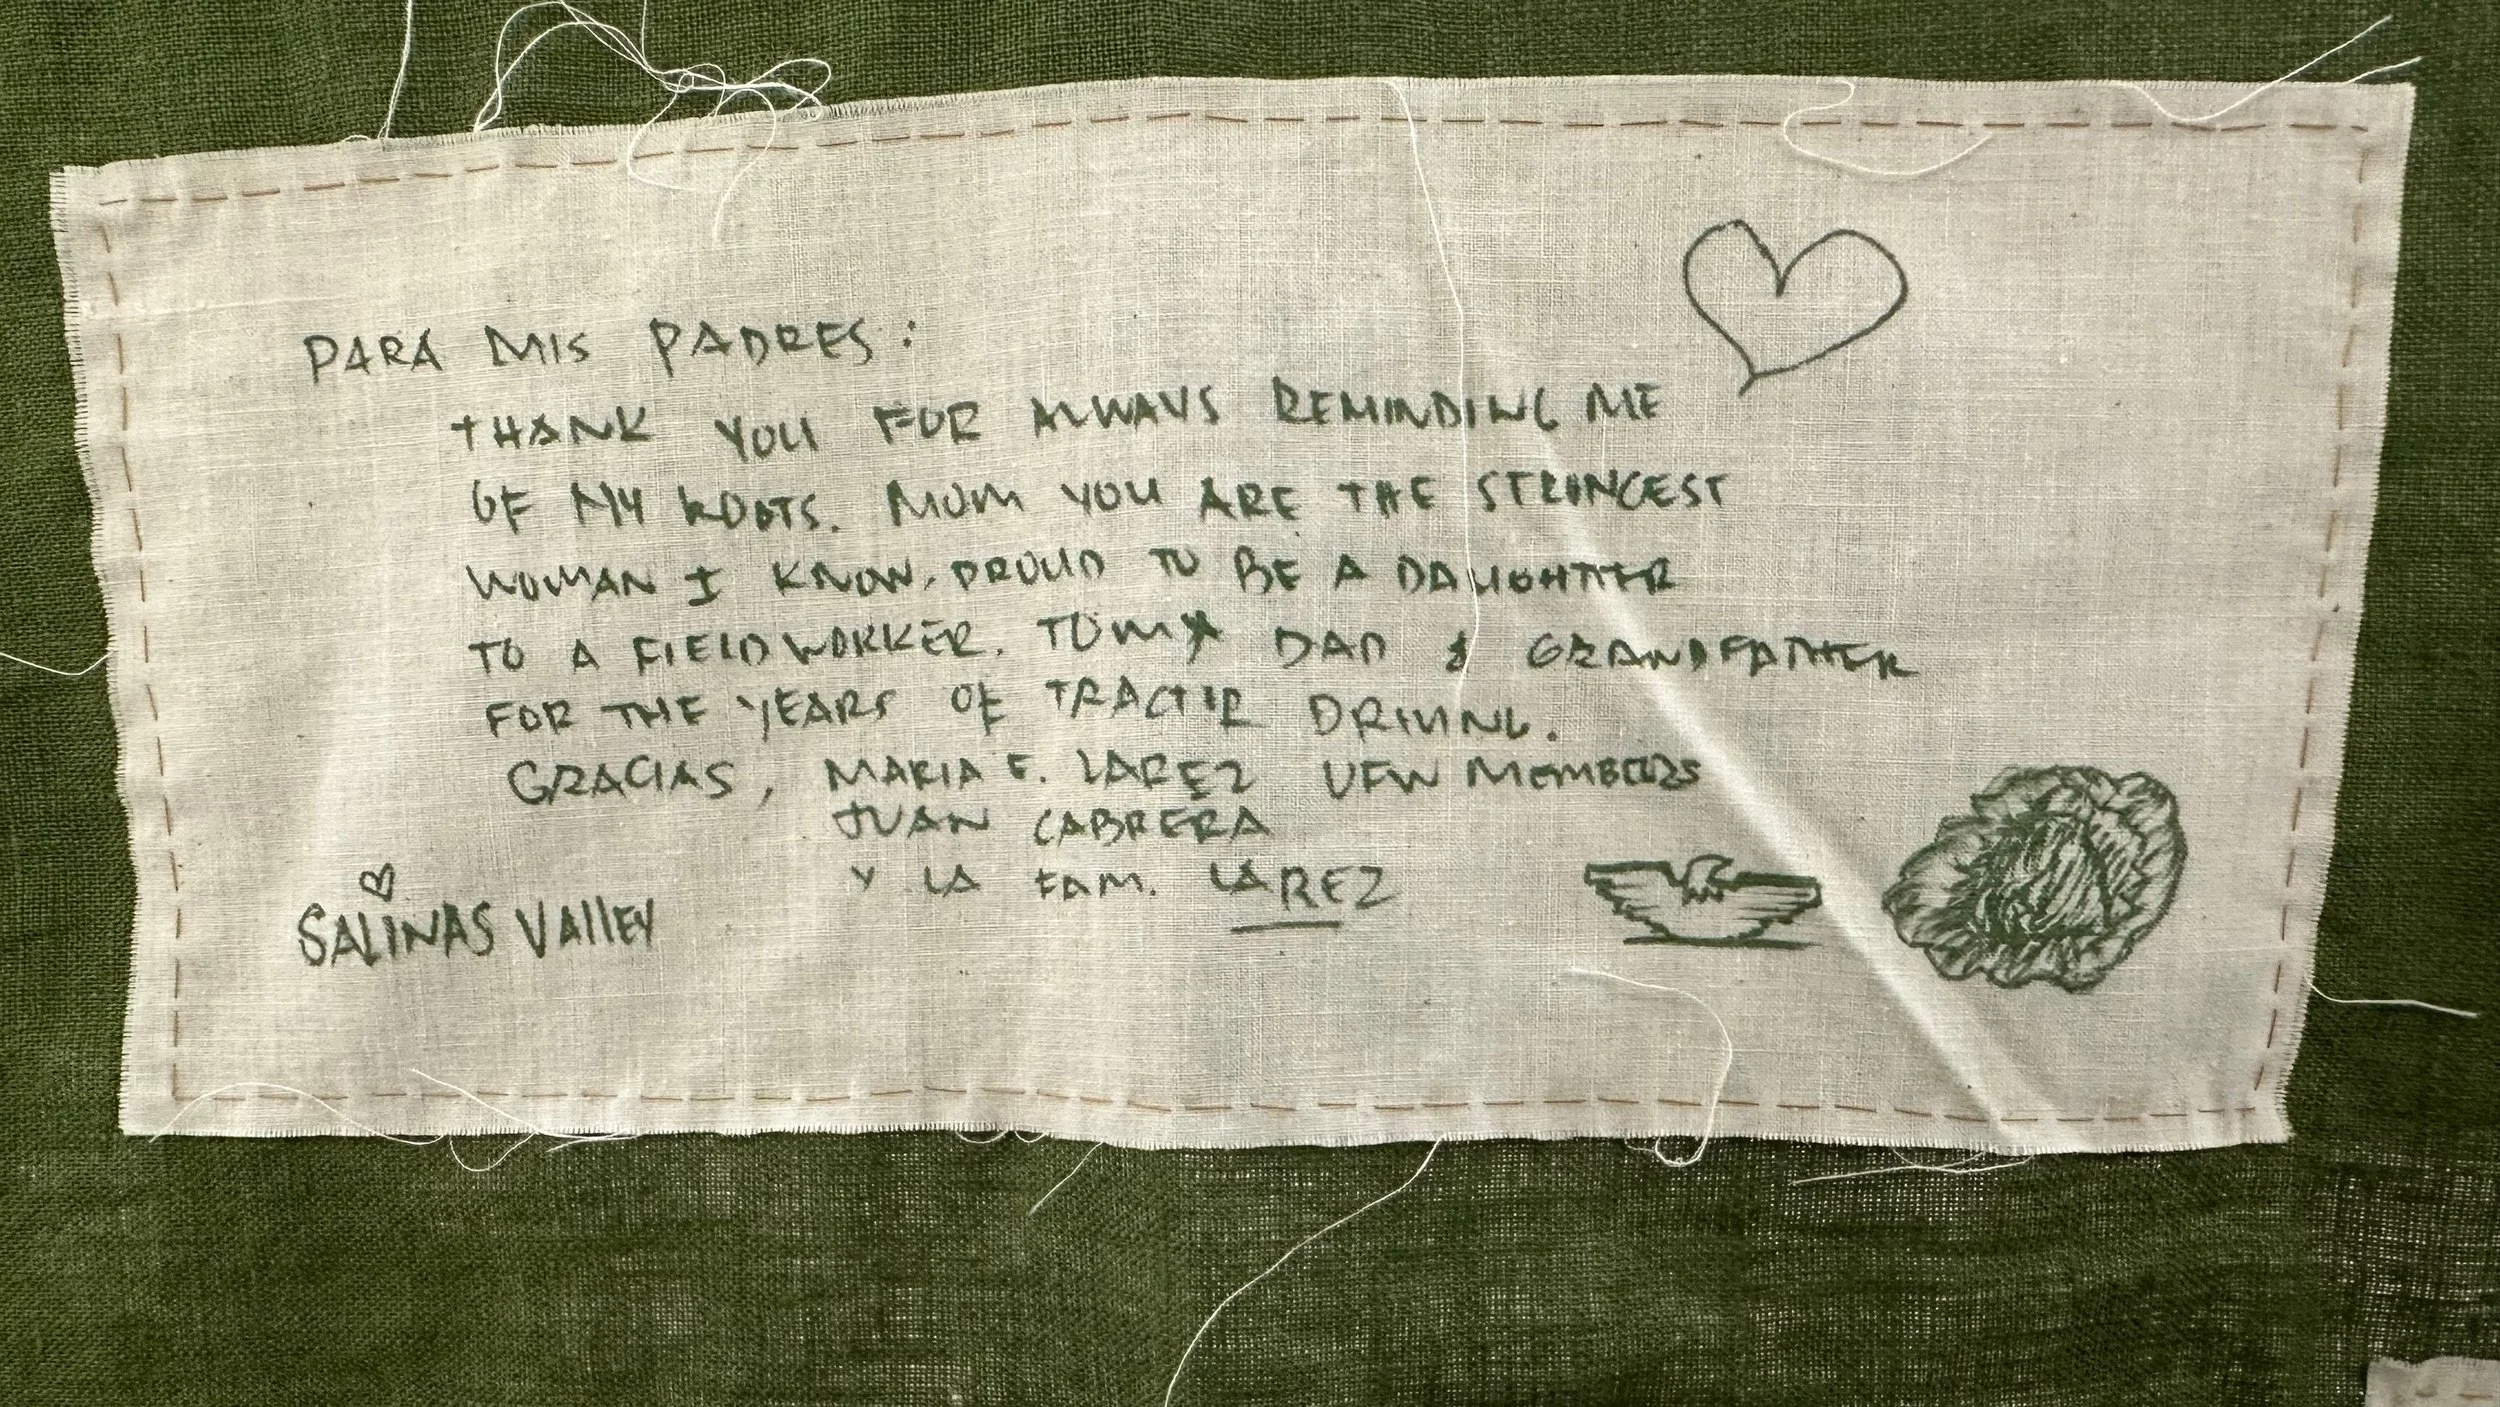 PARA MIS PADRES:
THANK YOU FOR ALWAYS REMINDING ME
OF MY ROOTS. MOM YOU ARE THE STRONGEST
WOMAN I KNOW, PROUD TO BE A DAUGHTER
TO A FIELDWORKER. TO MY DAD & GRANDFATHER
FOR THE YEARS OF TRACTOR DRIVING.
GRACIAS, MARIA E. LAREZ UFW MEMBERS
JUAN CABRERA
Y LA FAM. LAREZ
SALINAS VAllEY